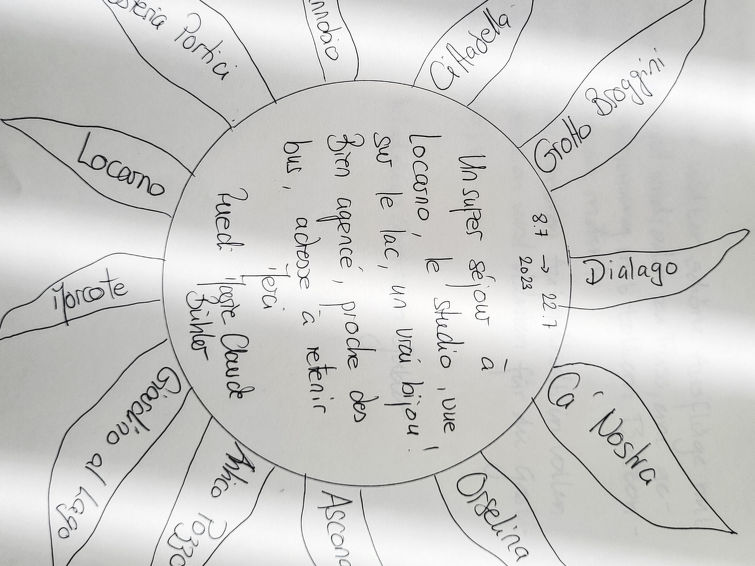 8.7 → 22.7
2023
Un super séjour à
Locarno, le studio, vue
sur le lac, un vrai bijou!
Bien agencé, proche des
bus, adresse à retenir
Merci
Ruedi Marie-Claude
Bühler
Cittadella
Grotto Broggini
Dialago
Ca' Nostra
Orselina
Ascona
Antico Pozzo
Giardino al Lago
Morcote
Locarno
Portici